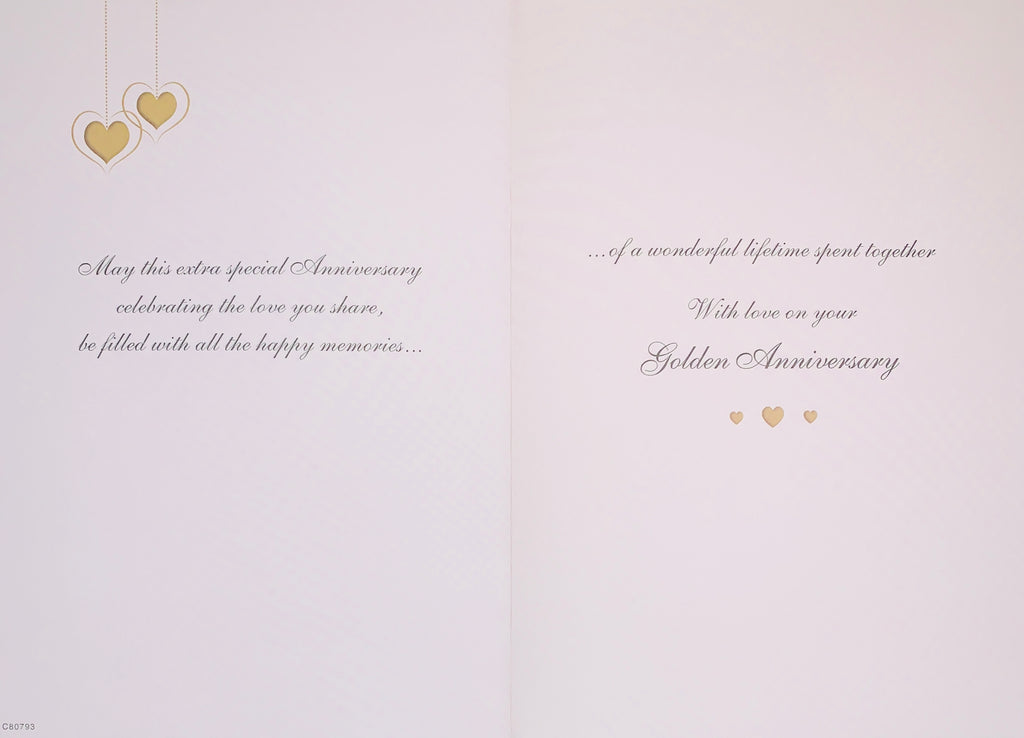 May this extra special Anniversary
celebrating the love you share,
be filled with all the happy memories...
...of a wonderful lifetime spent together
With love on your
Golden Anniversary
C80793